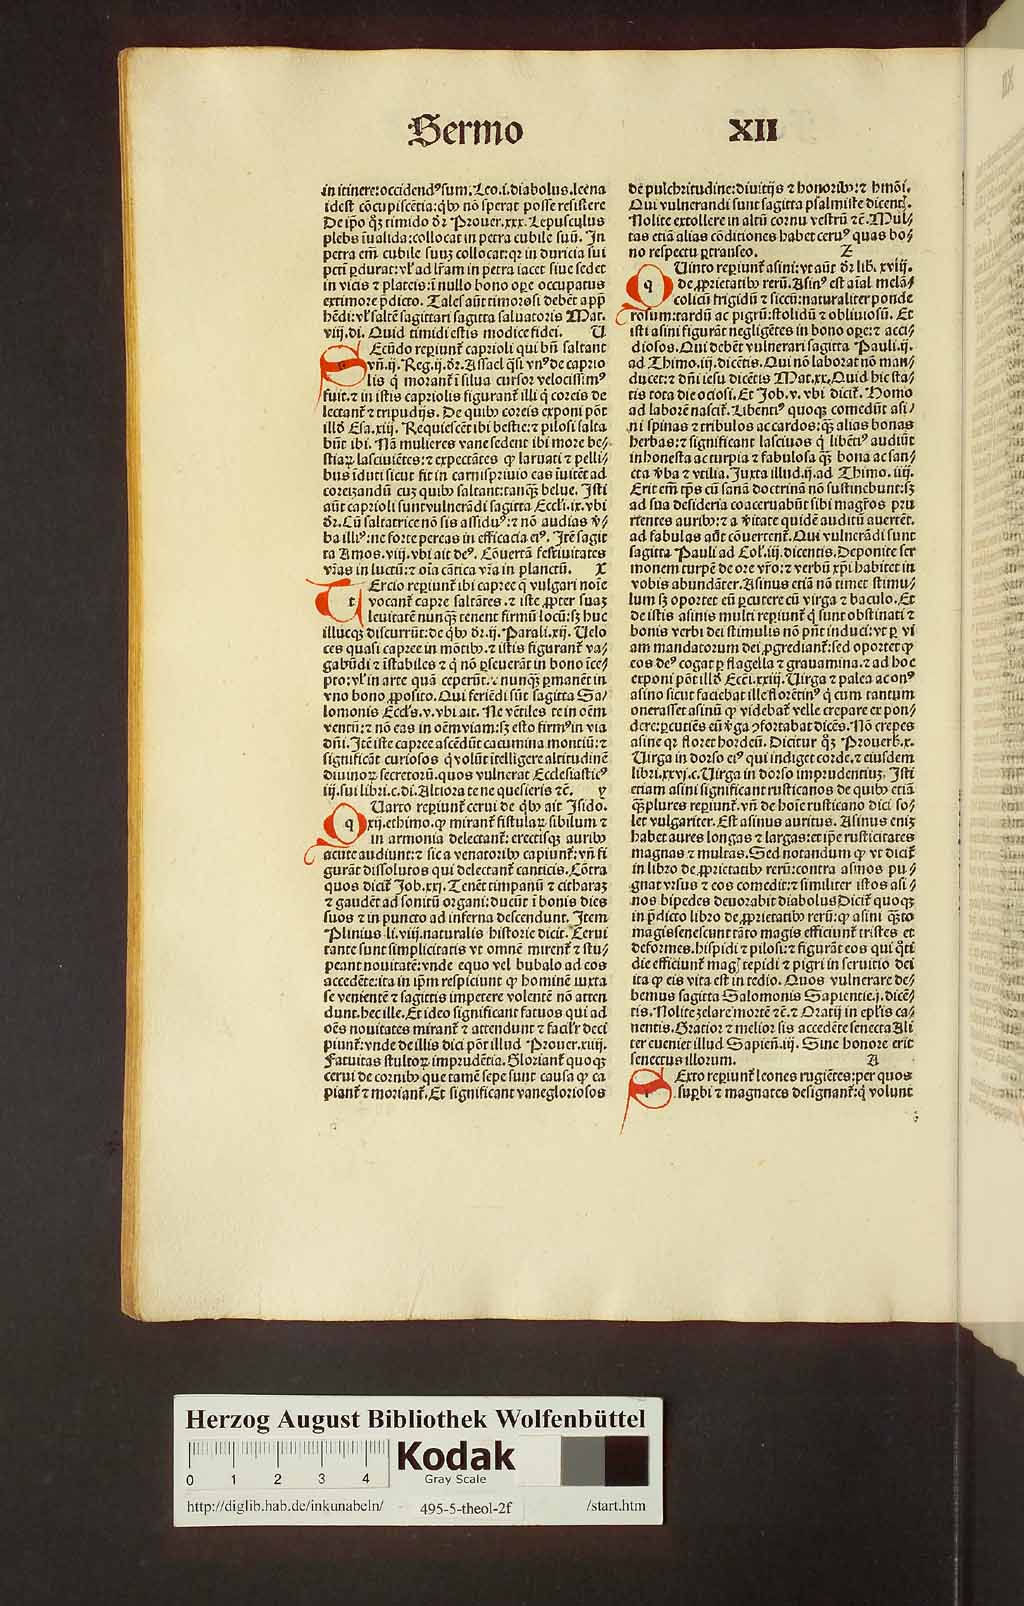 Sermo XII
in itinere: occidendꝰ sum. Leo .i. diabolus. leena
idest cōcupiscētia: qͥbꝰ nō sperat posse resistere
De ip̄o qͦꝫ timido dr̄ Prouer. xxx. Lepusculus
plebs īualida: collocat in petra cubile suū. In
petra em̄ cubile suuꝫ collocat: qꝛ in duricia sui
petī ꝑdurat: vl̓ ad lr̄am in petra iacet siue sedet
in vicis ⁊ plateis: ī nullo bono oꝑe occupatus
ex timore p̄dicto. Tales aūt timorosi debēt app̄
hēdi: vl̓ saltē sagittari sagitta saluatoris Mat.
viij. di. Quid timidi estis modice fidei. U
SEcūdo reꝑiunt̄ caprioli qui bn̄ saltant
vn̄ .ij. Reg. ij. dr̄. Assael qͣsi vnꝰ de caprio
lis q̇ morant̄ ī silua cursor velocissimꝰ
fuit. ⁊ in istis capriolis figurant̄ illi q̇ coreis de
lectant̄ ⁊ tripudijs. De quibꝰ coreis exponi pōt
illd̓ Esa. xiij. Requiescēt ibi bestie: ⁊ pilosi salta
būt ibi. Nā mulieres vane sedent ibi more be⸗
stiaꝝ lasciuiētes: ⁊ expectātes ꝙ laruati ⁊ pelli⸗
bus īduti sicut fit in carnispriuio eas īuitēt ad
coreizandū cuꝫ quibꝰ saltant: tanqͣꝫ belue. Isti
aūt caprioli sunt vulnerādi sagitta Eccl̓i. ix. vbi
dr̄. Cū saltatrice nō sis assiduꝰ: ⁊ nō audias v̓⸗
ba illiꝰ: ne forte pereas in efficacia eiꝰ. Itē sagit
ta Amos. viij. vbi ait deꝰ. Cōuertā festiuitates
vr̄as in luctū: ⁊ oīa cātica vr̄a in planctū. X
TErcio reꝑiunt̄ ibi capree q̇ vulgari noīe
vocant̄ capre saltātes. ⁊ iste ꝓpter suaꝫ
leuitatē nunqͣꝫ tenent firmū locū: sꝫ huc
illucqꝫ discurrūt: de qͥbꝰ dr̄ .ij. Parali. xij. Uelo
ces quasi capree in mōtibꝰ. ⁊ istis figurant̄ va⸗
gabūdi ⁊ īstabiles ⁊ q̇ nō ꝑseuerāt in bono īce⸗
pto: vl̓ in arte quā ceperūt. ⁊ nunqͣꝫ ꝑmanēt in
vno bono ꝓposito. Qui feriēdi sūt sagitta Sa⸗
lomonis Eccl̓s. v. vbi ait. Ne vētiles te in oēm
ventū: ⁊ nō eas in oēm viam: sꝫ esto firmꝰ in via
dn̄i. Itē iste capree ascēdūt cacumina montiū: ⁊
significāt curiosos q̇ volūt ītelligere altitudinē
diuinoꝝ secretorū. quos vulnerat Ecclesiasticꝰ
iij. sui libri. c. di. Altiora te ne quesieris ⁊c̄. y
QUarto reꝑiunt̄ cerui de qͥbꝰ ait Isido.
xij. ethimo. ꝙ mirant̄ fistulaꝝ sibilum ⁊
in armonia delectant̄: erectisqꝫ auribꝰ
acute audiunt: ⁊ sic a venatoribꝰ capiunt̄: vn̄ fi
gurāt dissolutos qui delectant̄ canticis. Cōtra
quos dicit̄ Job. xxj. Tenēt timpanū ⁊ citharaꝫ
⁊ gaudēt ad sonitū organi: ducūt ī bonis dies
suos ⁊ in puncto ad inferna descendunt. Item
Plinius li. viij. naturalis historie dicit. Cerui
tante sunt simplicitatis vt omnē mirent̄ ⁊ stu⸗
peant nouitatē: vnde equo vel bubalo ad eos
accedēte: ita in ip̄m respiciunt ꝙ hominē iuxta
se venientē ⁊ sagittis impetere volentē nō atten
dunt. hec ille. Et ideo significant fatuos qui ad
oēs nouitates mirant̄ ⁊ attendunt ⁊ facilr̄ deci
piunt̄: vnde de illis dici pōt illud Prouer. xiiij.
Fatuitas stultoꝝ imprudētia. Gloriant̄ quoqꝫ
cerui de cornibꝰ que tamē sepe sunt causa ꝙ ca
piant̄ ⁊ moriant̄. Et significant vanegloriosos
de pulchritudine: diuitijs ⁊ honoribꝰ: ⁊ hmōi.
Qui vulnerandi sunt sagitta psalmiste dicent̓.
Nolite extollere in altū cornu vestrū ⁊c̄. Mul⸗
tas etiā alias cōditiones habet ceruꝰ quas bo⸗
no respectu ꝑtranseo. Z
QUinto reꝑiunt̄ asini: vt aūt dr̄ lib. xviij.
de ꝓprietatibꝰ rerū. Asinꝰ est aīal melā⸗
colicū frigidū ⁊ siccū: naturaliter ponde
rosum: tardū ac pigrū: stolidū ⁊ obliuiosū. Et
isti asini figurāt negligētes in bono oꝑe: ⁊ acci⸗
diosos. Qui debēt vulnerari sagitta Pauli. ij.
ad Thimo. iij. dicētis. Qui nō laborat nō man⸗
ducet: ⁊ dn̄i iesu dicētis Mat. xx. Quid hic sta⸗
tis tota die ociosi. Et Job. v. vbi dicit̄. Homo
ad laborē nascit̄. Libentiꝰ quoqꝫ comedūt asi⸗
ni spinas ⁊ tribulos ac cardos: qͣꝫ alias bonas
herbas: ⁊ significant lasciuos q̇ libētiꝰ audiūt
inhonesta ac turpia ⁊ fabulosa qͣꝫ bona ac san⸗
cta v̓ba ⁊ vtilia. Juxta illud .ij. ad Thimo. iiij.
Erit em̄ tp̄s cū sanā doctrinā nō sustinebunt: sꝫ
ad sua desideria coaceruabūt sibi magr̄os pru
rientes auribꝰ: ⁊ a v̓itate quidē auditū auertēt.
ad fabulas aūt cōuertent̄. Qui vulnerādi sunt
sagitta Pauli ad Col̓. iij. dicentis. Deponite ser
monem turpē de ore vr̄o: ⁊ verbū xp̄i habitet in
vobis abundāter. Asinus etiā nō timet stimu⸗
lum sꝫ oportet eū ꝑcutere cū virga ⁊ baculo. Et
de istis asinis multi reꝑiunt̄ q̇ sunt obstinati ⁊
bonis verbi dei stimulis nō pn̄t induci: vt ꝑ vi
am mandatorum dei ꝓgrediant̄: sed oportet ꝙ
eos deꝰ cogat ꝑ flagella ⁊ grauamina. ⁊ ad hoc
exponi pōt illd̓ Ecci. xxiij. Uirga ⁊ palea ac onꝰ
asino sicut faciebat ille florētinꝰ q̇ cum tantum
onerasset asinū ꝙ videbat̄ velle crepare ex pon⸗
dere: ꝑcutiēs eū v̓ga ꝯfortabat dicēs. Nō crepes
asine qꝛ floret hordeū. Dicitur qͦꝫ Prouerb. x.
Uirga in dorso eiꝰ qui indiget corde. ⁊ eiusdem
libri. xxvj. c. Uirga in dorso imprudentiuꝫ. Isti
etiam asini significant rusticanos de quibꝰ etiā
qͣꝫplures reꝑiunt̄. vn̄ de hoīe rusticano dici so⸗
let vulgariter. Est asinus auritus. Asinus eniꝫ
habet aures longas ⁊ largas: et ip̄e rusticitates
magnas ⁊ multas. Sed notandum ꝙ vt dicit̄
in libro de ꝓprietatibꝰ rerū: contra asinos pu⸗
gnat vrsus ⁊ eos comedit: ⁊ similiter istos asi⸗
nos bipedes deuorabit diabolus Dicit̄ quoqꝫ
in p̄dicto libro de ꝓprietatibꝰ rerū: ꝙ asini qͣꝫto
magis senescunt tāto magis efficiunt̄ tristes et
deformes. hispidi ⁊ pilosi: ⁊ figurāt eos qui qͦti
die efficiunt̄ mag̓ tepidi ⁊ pigri in seruitio dei
ita ꝙ eis vita est in tedio. Quos vulnerare de⸗
bemus sagitta Salomonis Sapientie. j. dicē⸗
tis. Nolite zelare mortē ⁊c̄. ⁊ Oratij in ep̄lis ca⸗
nentis. Gratior ⁊ melior sis accedēte senecta Ali
ter eueniet illud Sapien̄. iij. Sine honore erit
senectus illorum. A
SExto reꝑiunt̄ leones rugiētes: per quos
suꝑbi ⁊ magnates designant̄: q̇ volunt
Herzog August Bibliothek Wolfenbüttel
0 1 2 3 4
Kodak
Gray Scale
http://diglib.hab.de/inkunabeln/ 495-5-theol-2f /start.htm